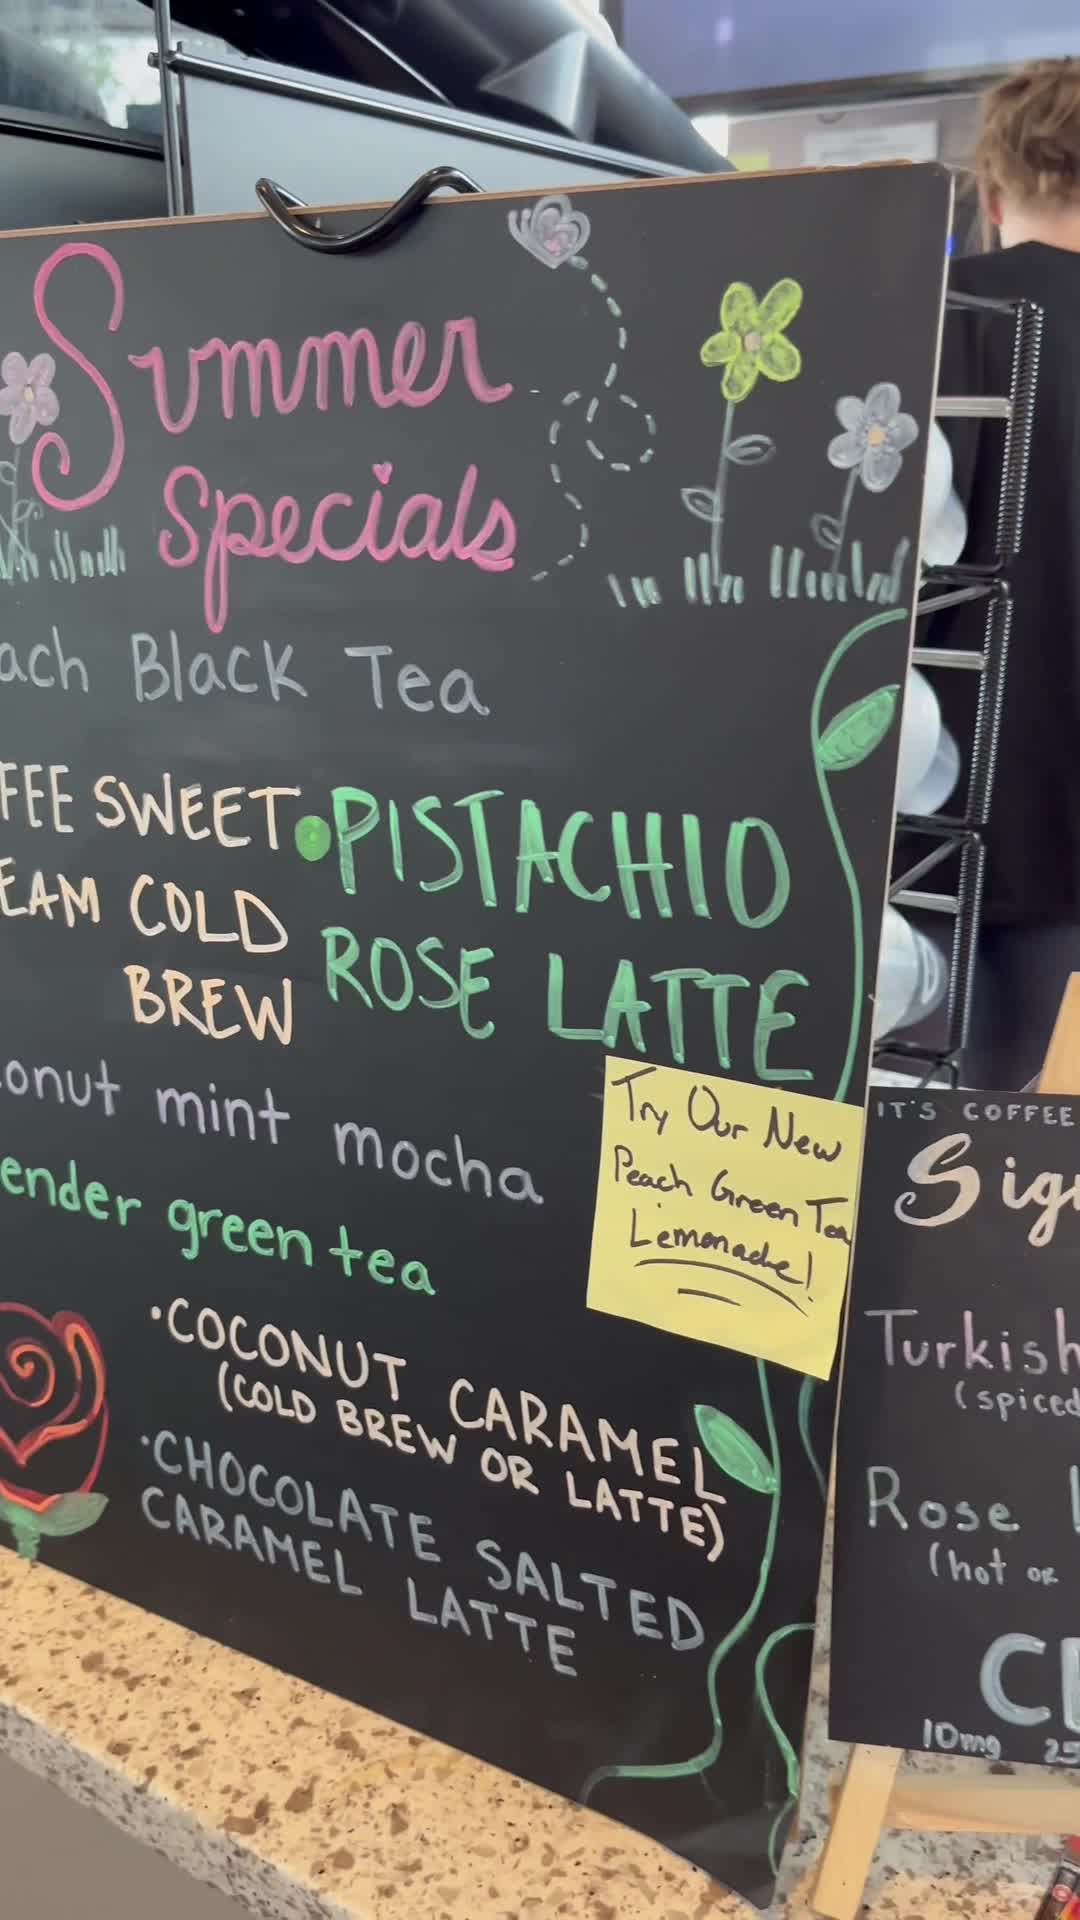 Summer
Specials
ach Black Tea
FEE SWEET
EAM COLD
BREW
•PISTACHIO
ROSE LATTE
onut mint mocha
ender green tea
Try Our New
Peach Green Tea
Lemonade!
•COCONUT CARAMEL
(COLD BREW OR LATTE)
•CHOCOLATE SALTED
CARAMEL LATTE
IT'S COFFEE
Sig
Turkish
(spiced
Rose
(hot or
C
10mg 25